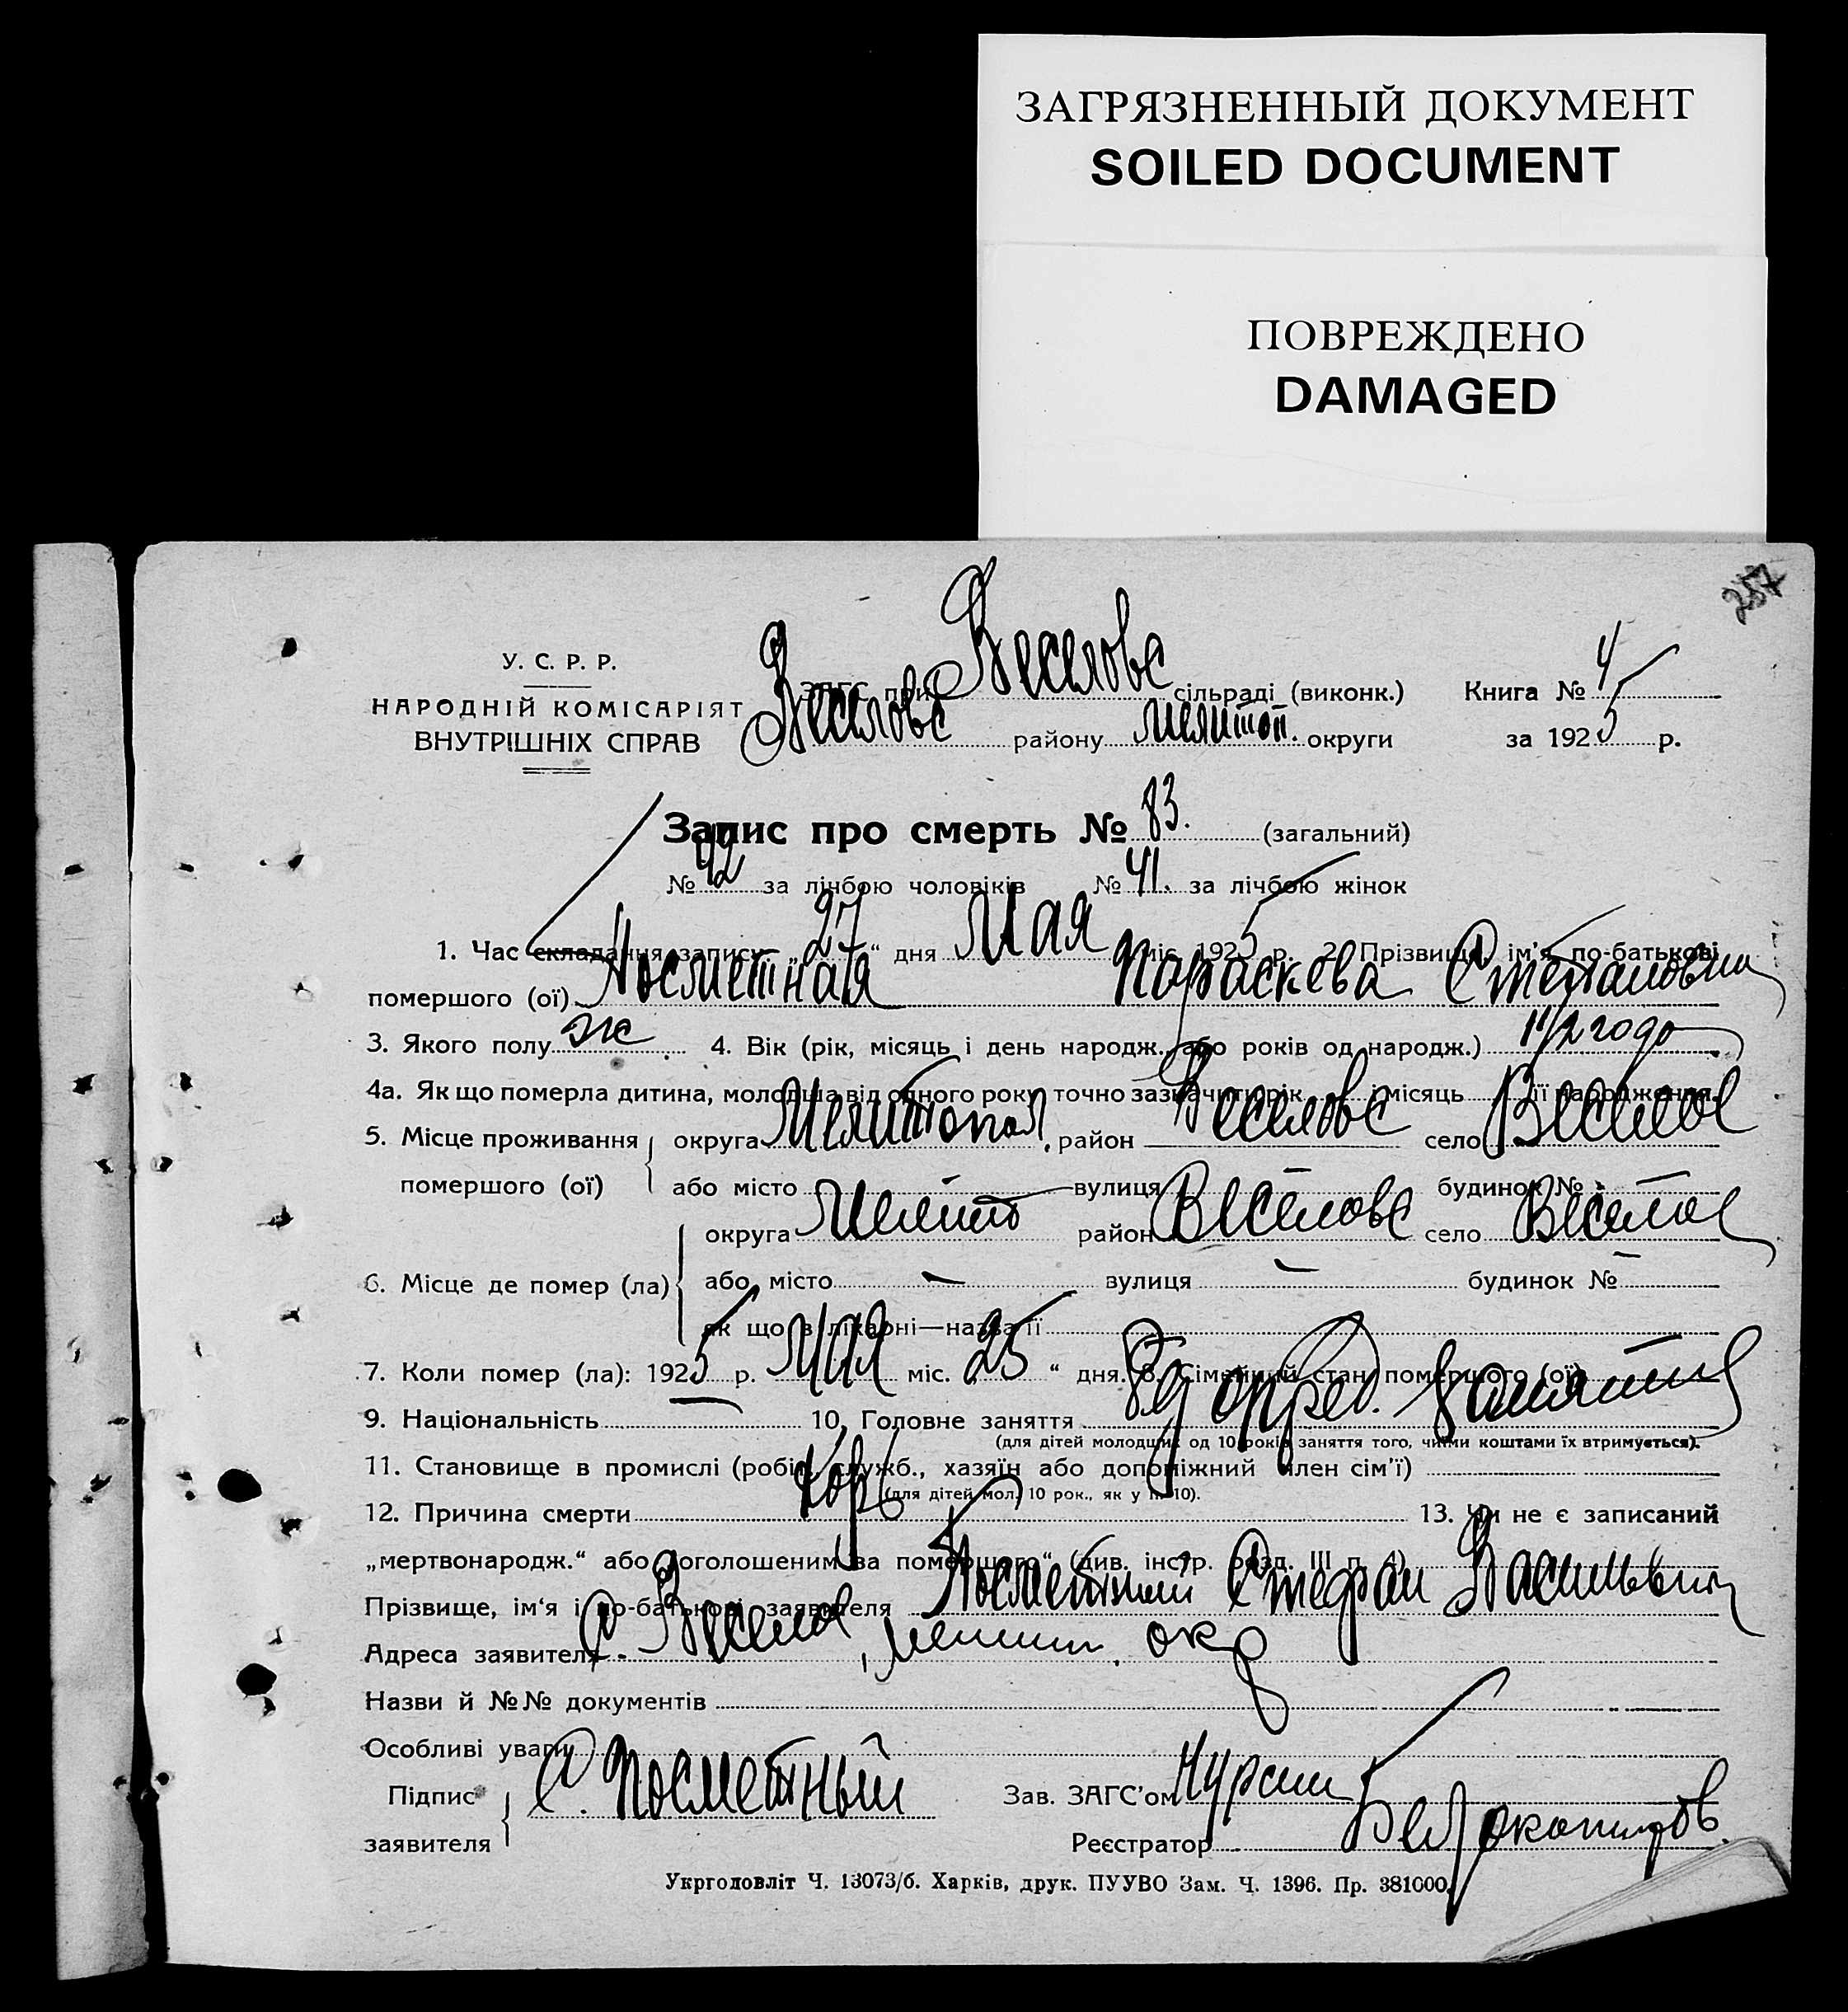 ЗАГРЯЗНЕННЫЙ ДОКУМЕНТ
SOILED DOCUMENT
ПОВРЕЖДЕНО
DAMAGED
257
У. С. Р. Р.
НАРОДНІЙ КОМІСАРІЯТ
ВНУТРІШНІХ СПРАВ
ЗАГС при Веселовс сільраді (виконк.)
Веселовс району Мелитоп. округи
Книга № 4
за 1925 р.
Запис про смерть № 83. (загальний)
№ 42 за лічбою чоловіків № 41. за лічбою жінок
1. Час складання запису „27“ дня Мая міс. 1925 р. 2. Прізвище, ім'я, по-батькові
помершого (ої) Посметная Параскева Степановна
3. Якого полу ж 4. Вік (рік, місяць і день народж. або років од народж.) 1 1/2 года
4а. Як що померла дитина, молодша від одного року, точно зазначити рік і місяць її народження.
5. Місце проживання округа Мелитопол. район Веселовс село Веселое
помершого (ої) або місто вулиця будинок №
округа Мелито район Веселовс село Веселое
6. Місце де помер (ла) або місто — вулиця — будинок № —
як що в лікарні—назва її
7. Коли помер (ла): 1925 р. Мая міс. „25“ дня. 8. Сімейний стан помершого (ої)
9. Національність — 10. Головне заняття опред. занятия
(для дітей молодших од 10 років заняття того, чиїми коштами їх втримується).
11. Становище в промислі (робіт., служб., хазяїн або допоміжний член сім'ї)
(для дітей мол. 10 рок., як у п. 10).
12. Причина смерти Корь 13. Чи не є записаний
„мертвонародж.“ або „оголошеним за помершого“ (див. інстр. розд. III п. 4)
Прізвище, ім'я і по-батькові заявителя Посметный Стефан Васильевич
Адреса заявителя с. Веселое, Мелит. окр
Назви й №№ документів
Особливі уваги
Підпис заявителя С. Посметный
Зав. ЗАГС'ом
Реєстратор
Укрголовліт Ч. 13073/б. Харків, друк. ПУУВО Зам. Ч. 1396. Пр. 381000.